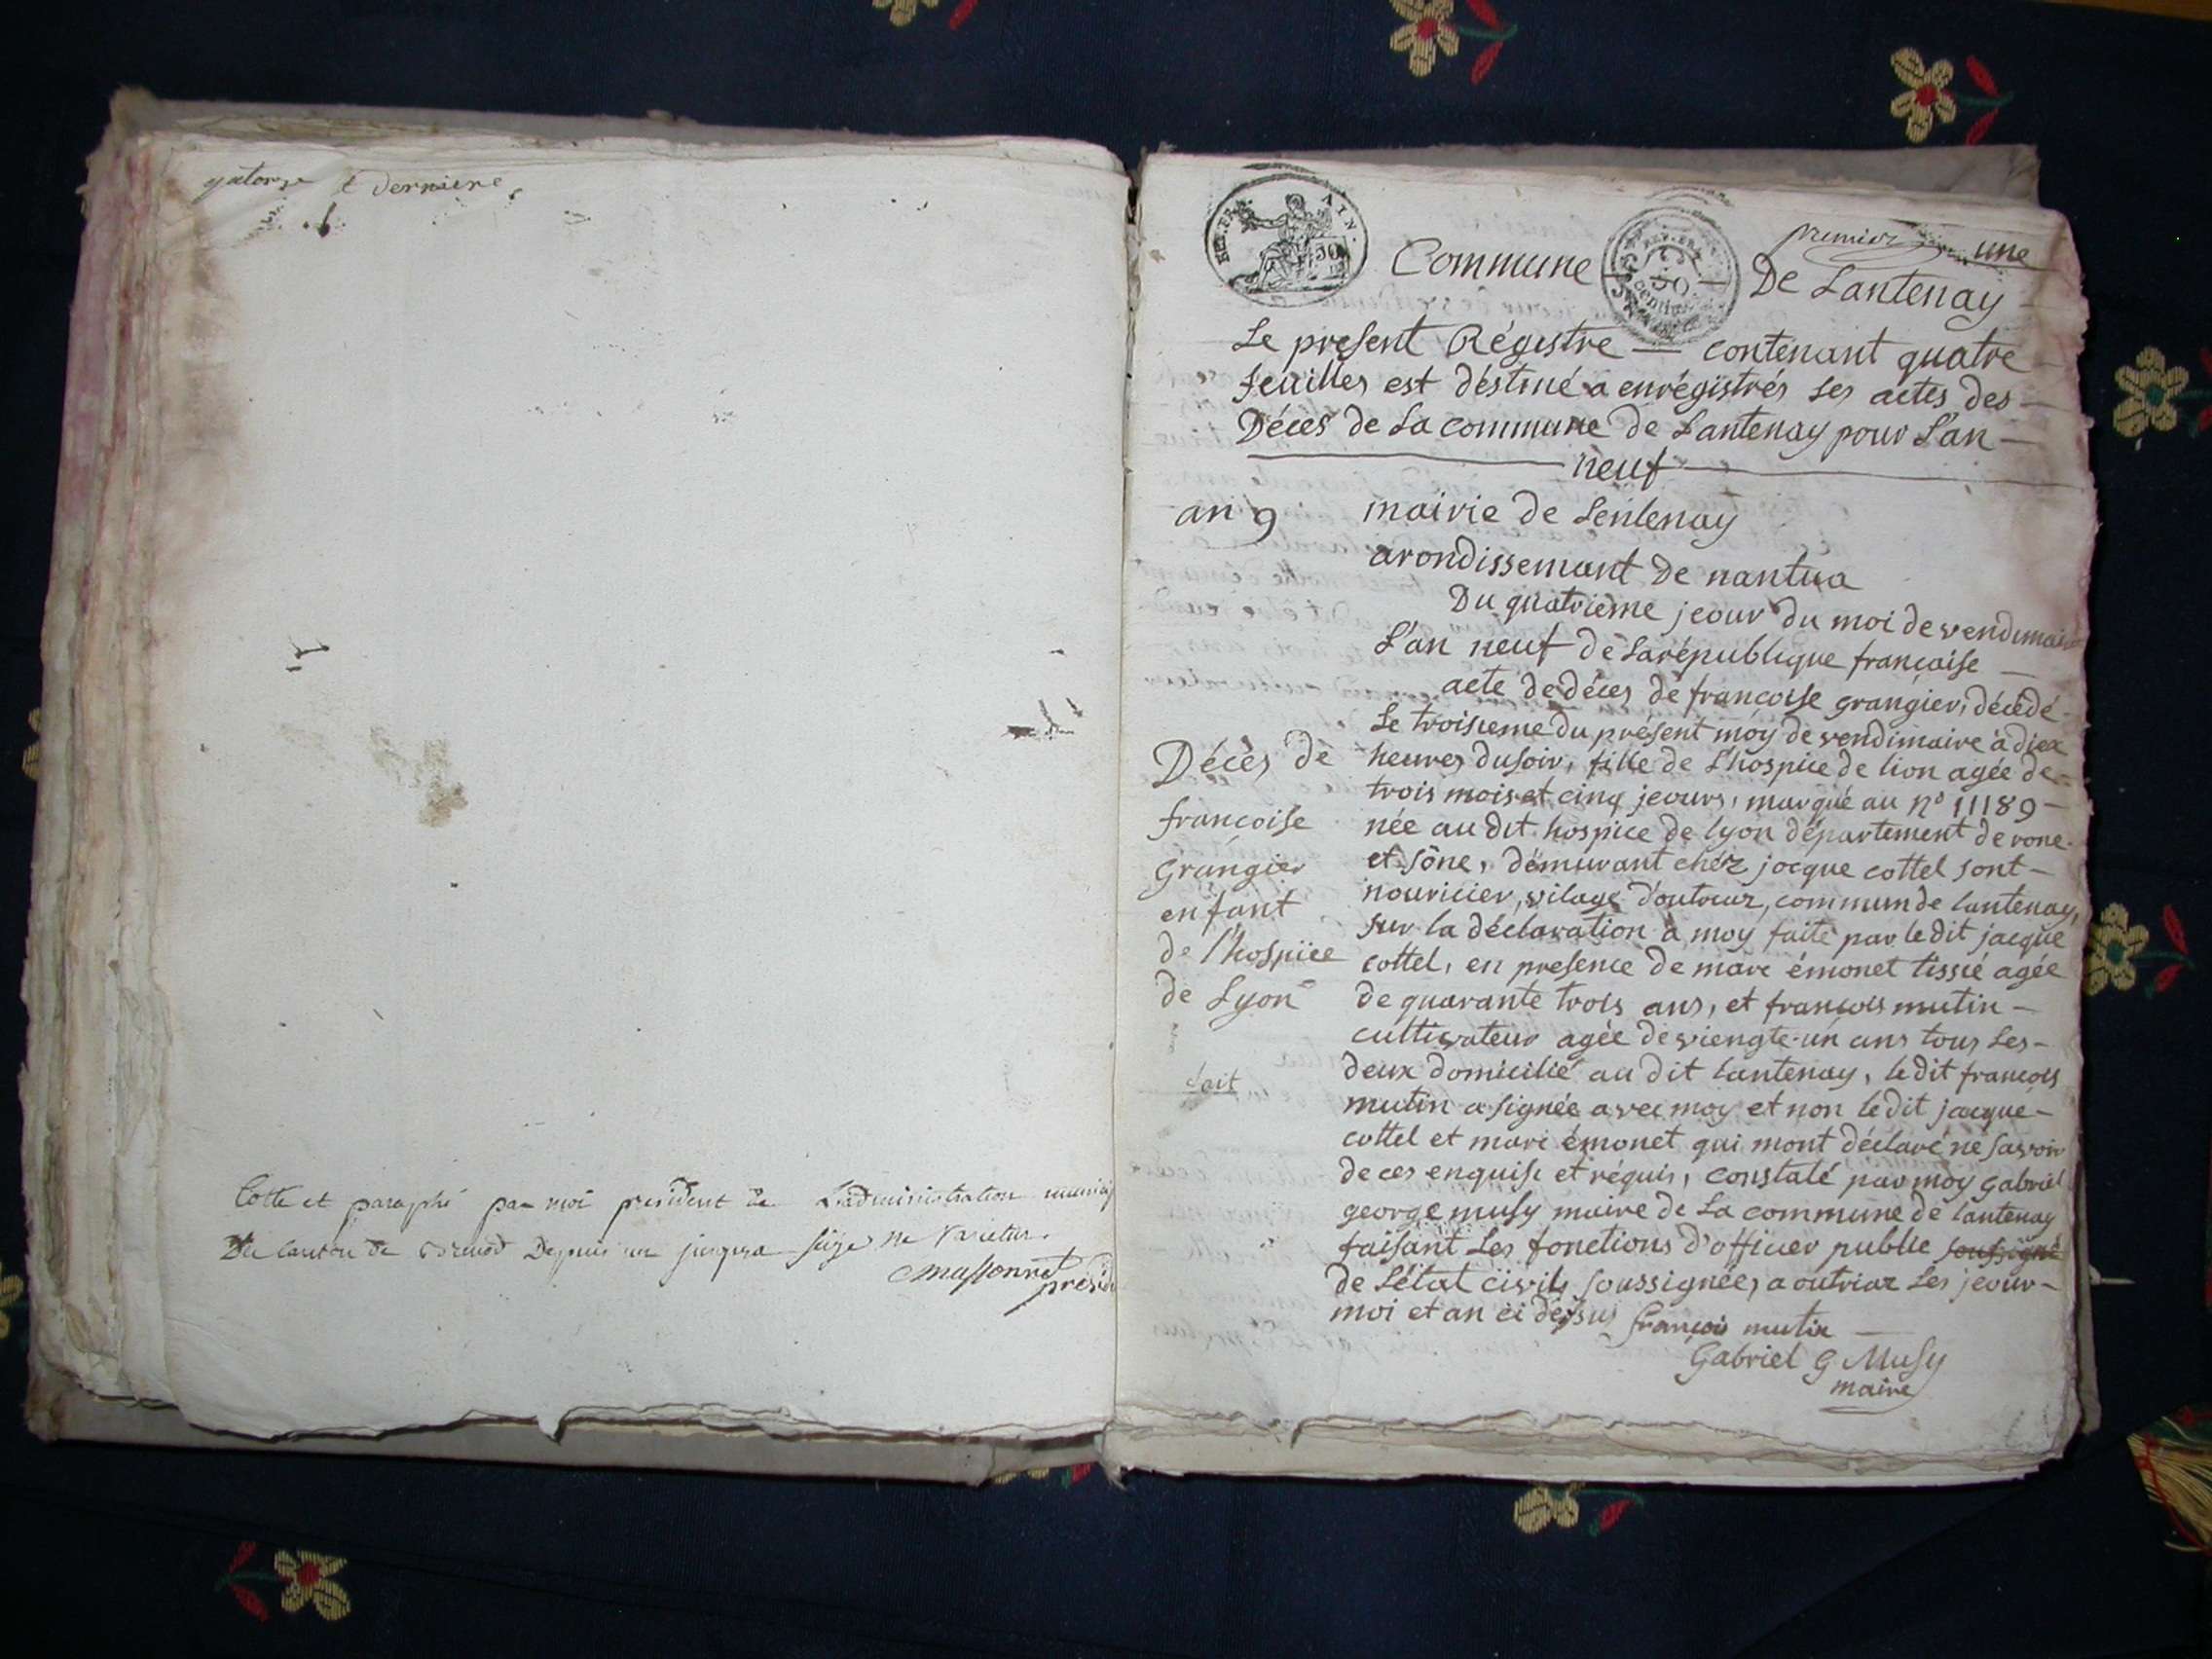 et derniere
Cotte et paraphé par moi president de L'administration
du canton de Depuis un jusqua seize ne varietur.
président
REP. FRA. AIN.
50
REP. FRA.
50
centimes
premier une
Commune — De Lantenay
Le present Régistre — contenant quatre
feuilles est déstiné a enrégistrés les actes des
Décès de La commune de Lantenay pour L'an
neuf
an 9
mairie de Lentenay
arondissemant de nantua
Du quatrieme jeour du moi de vendimaire
L'an neuf de La république françoise
acte de déces de françoise grangier, décédé
Le troisieme du présent moy de vendimaire à diex
heures du soir, fille de L'hospice de lion agée de
trois mois et cinq jeours, marqué au n° 11189
née au dit hospice de lyon département de rone
et sône, démurant chéz jacque cottel sont
nouricier, vilage d'outriaz, commun de lantenay,
sur la déclaration a moy faite par le dit jacque
cottel, en presence de marc émonet tissié agée
de quarante trois ans, et francois mutin
cultivateur agée de viengte-un ans tous Les
deux domicilié au dit lantenay, le dit francois
mutin a signée avec moy et non le dit jacque
cottel et marc émonet qui mont déclaré ne savoir
de ces enquise et réquis, constaté par moy gabriel
george musy maire de La commune de lantenay
faisant Les fonctions d'officier public soussigné
de L'état civils soussignée, a outriaz Les jeour
moi et an ci dessus françois mutin
Gabriel G Musy
maire
Décès de
francoise
Grangier
enfant
de l'hospice
de Lyon
fait